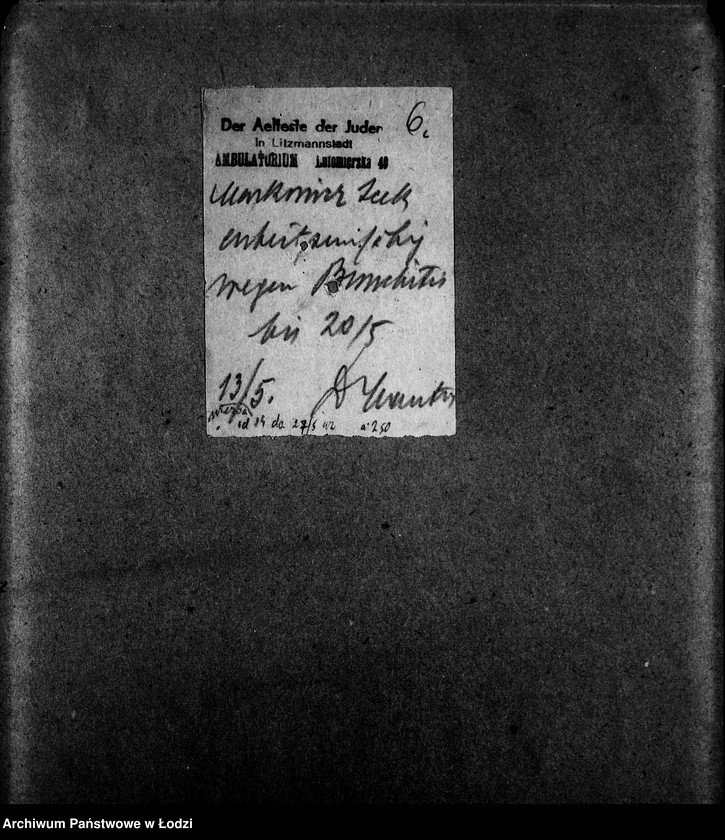 6.
Der Aelteste der Juden
in Litzmannstadt
AMBULATORIUM Lutomierska 40
Icek
arbeitsunfähig
wegen Bronchitis
bis 20/5
13/5. Dr
od 14 do 27/5 42 a 250
Archiwum Państwowe w Łodzi